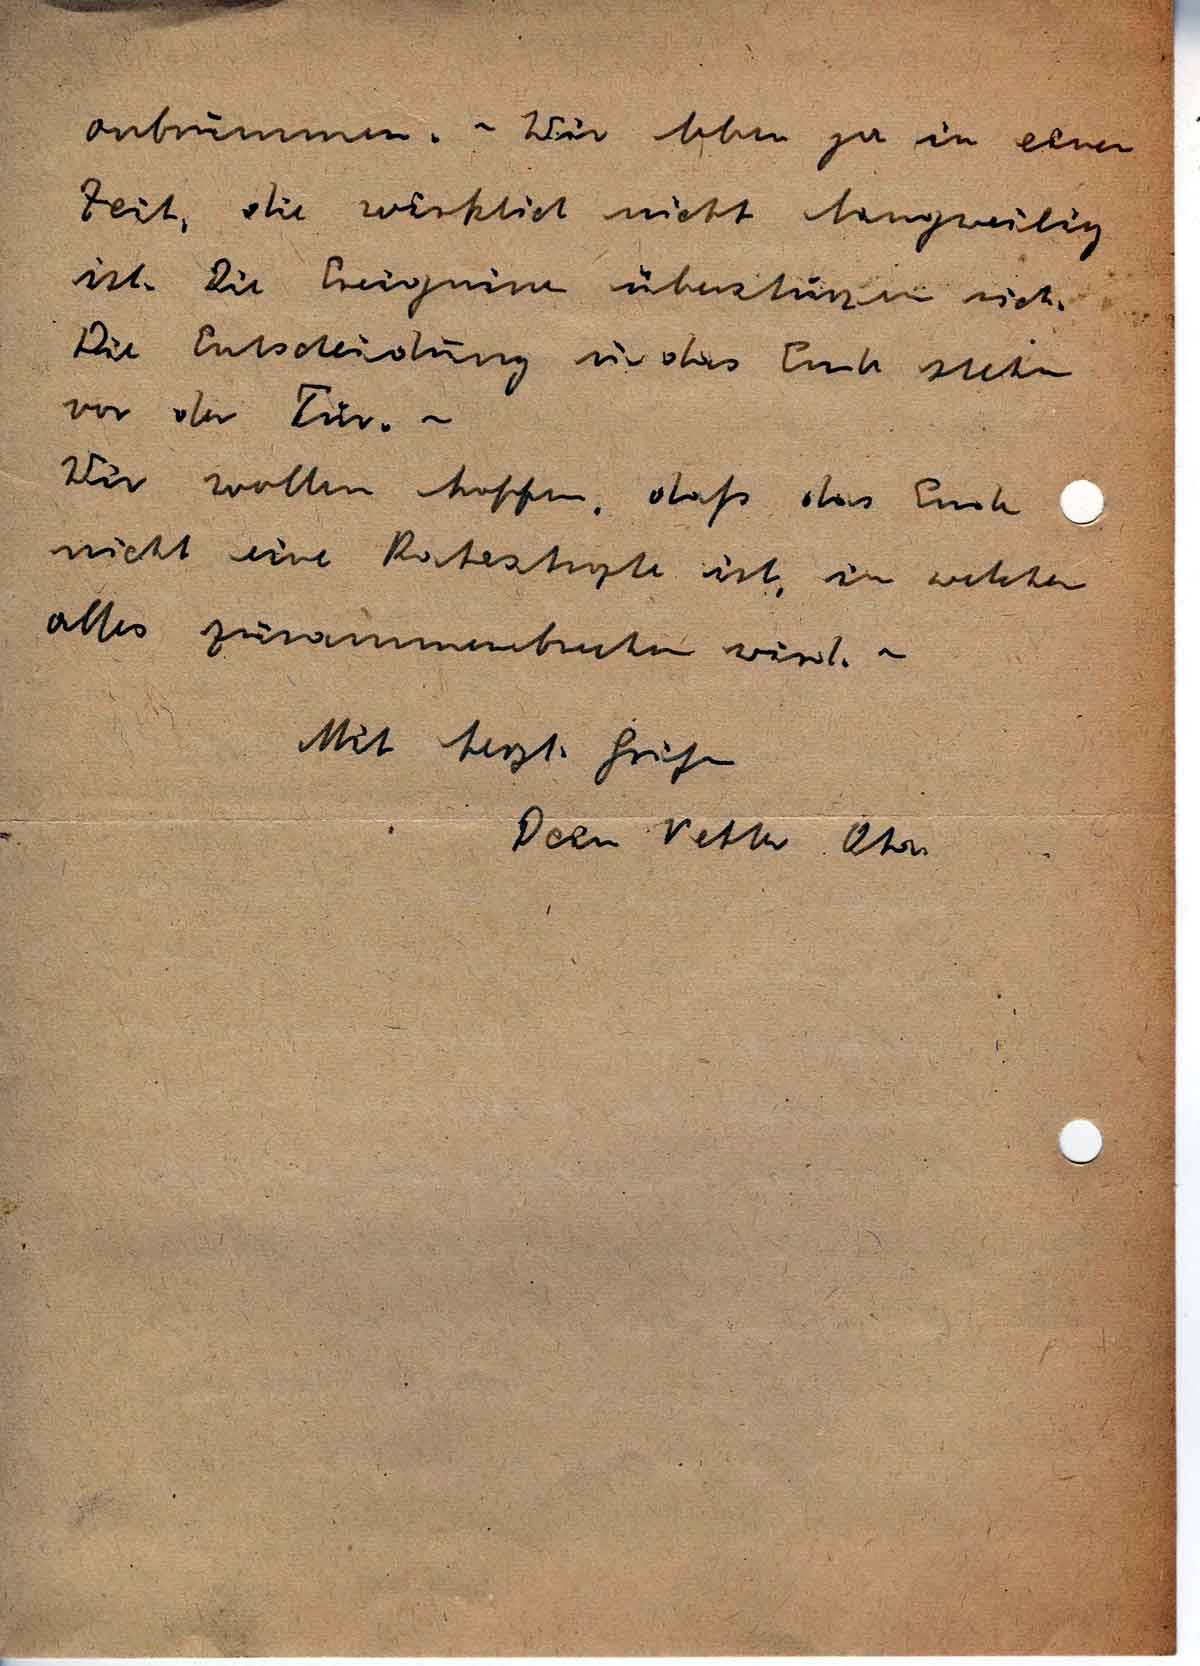 anbrummen. ~ Wir leben ja in einer
Zeit, die wirklich nicht langweilig
ist. Die Ereignisse überstürzen sich.
Die Entscheidung u. das Ende stehen
vor der Tür. ~
Wir wollen hoffen, daß das Ende
nicht eine Katastrophe ist, in welcher
alles zusammenbrechen wird. ~
Mit herzl. Grüßen
Dein Vetter